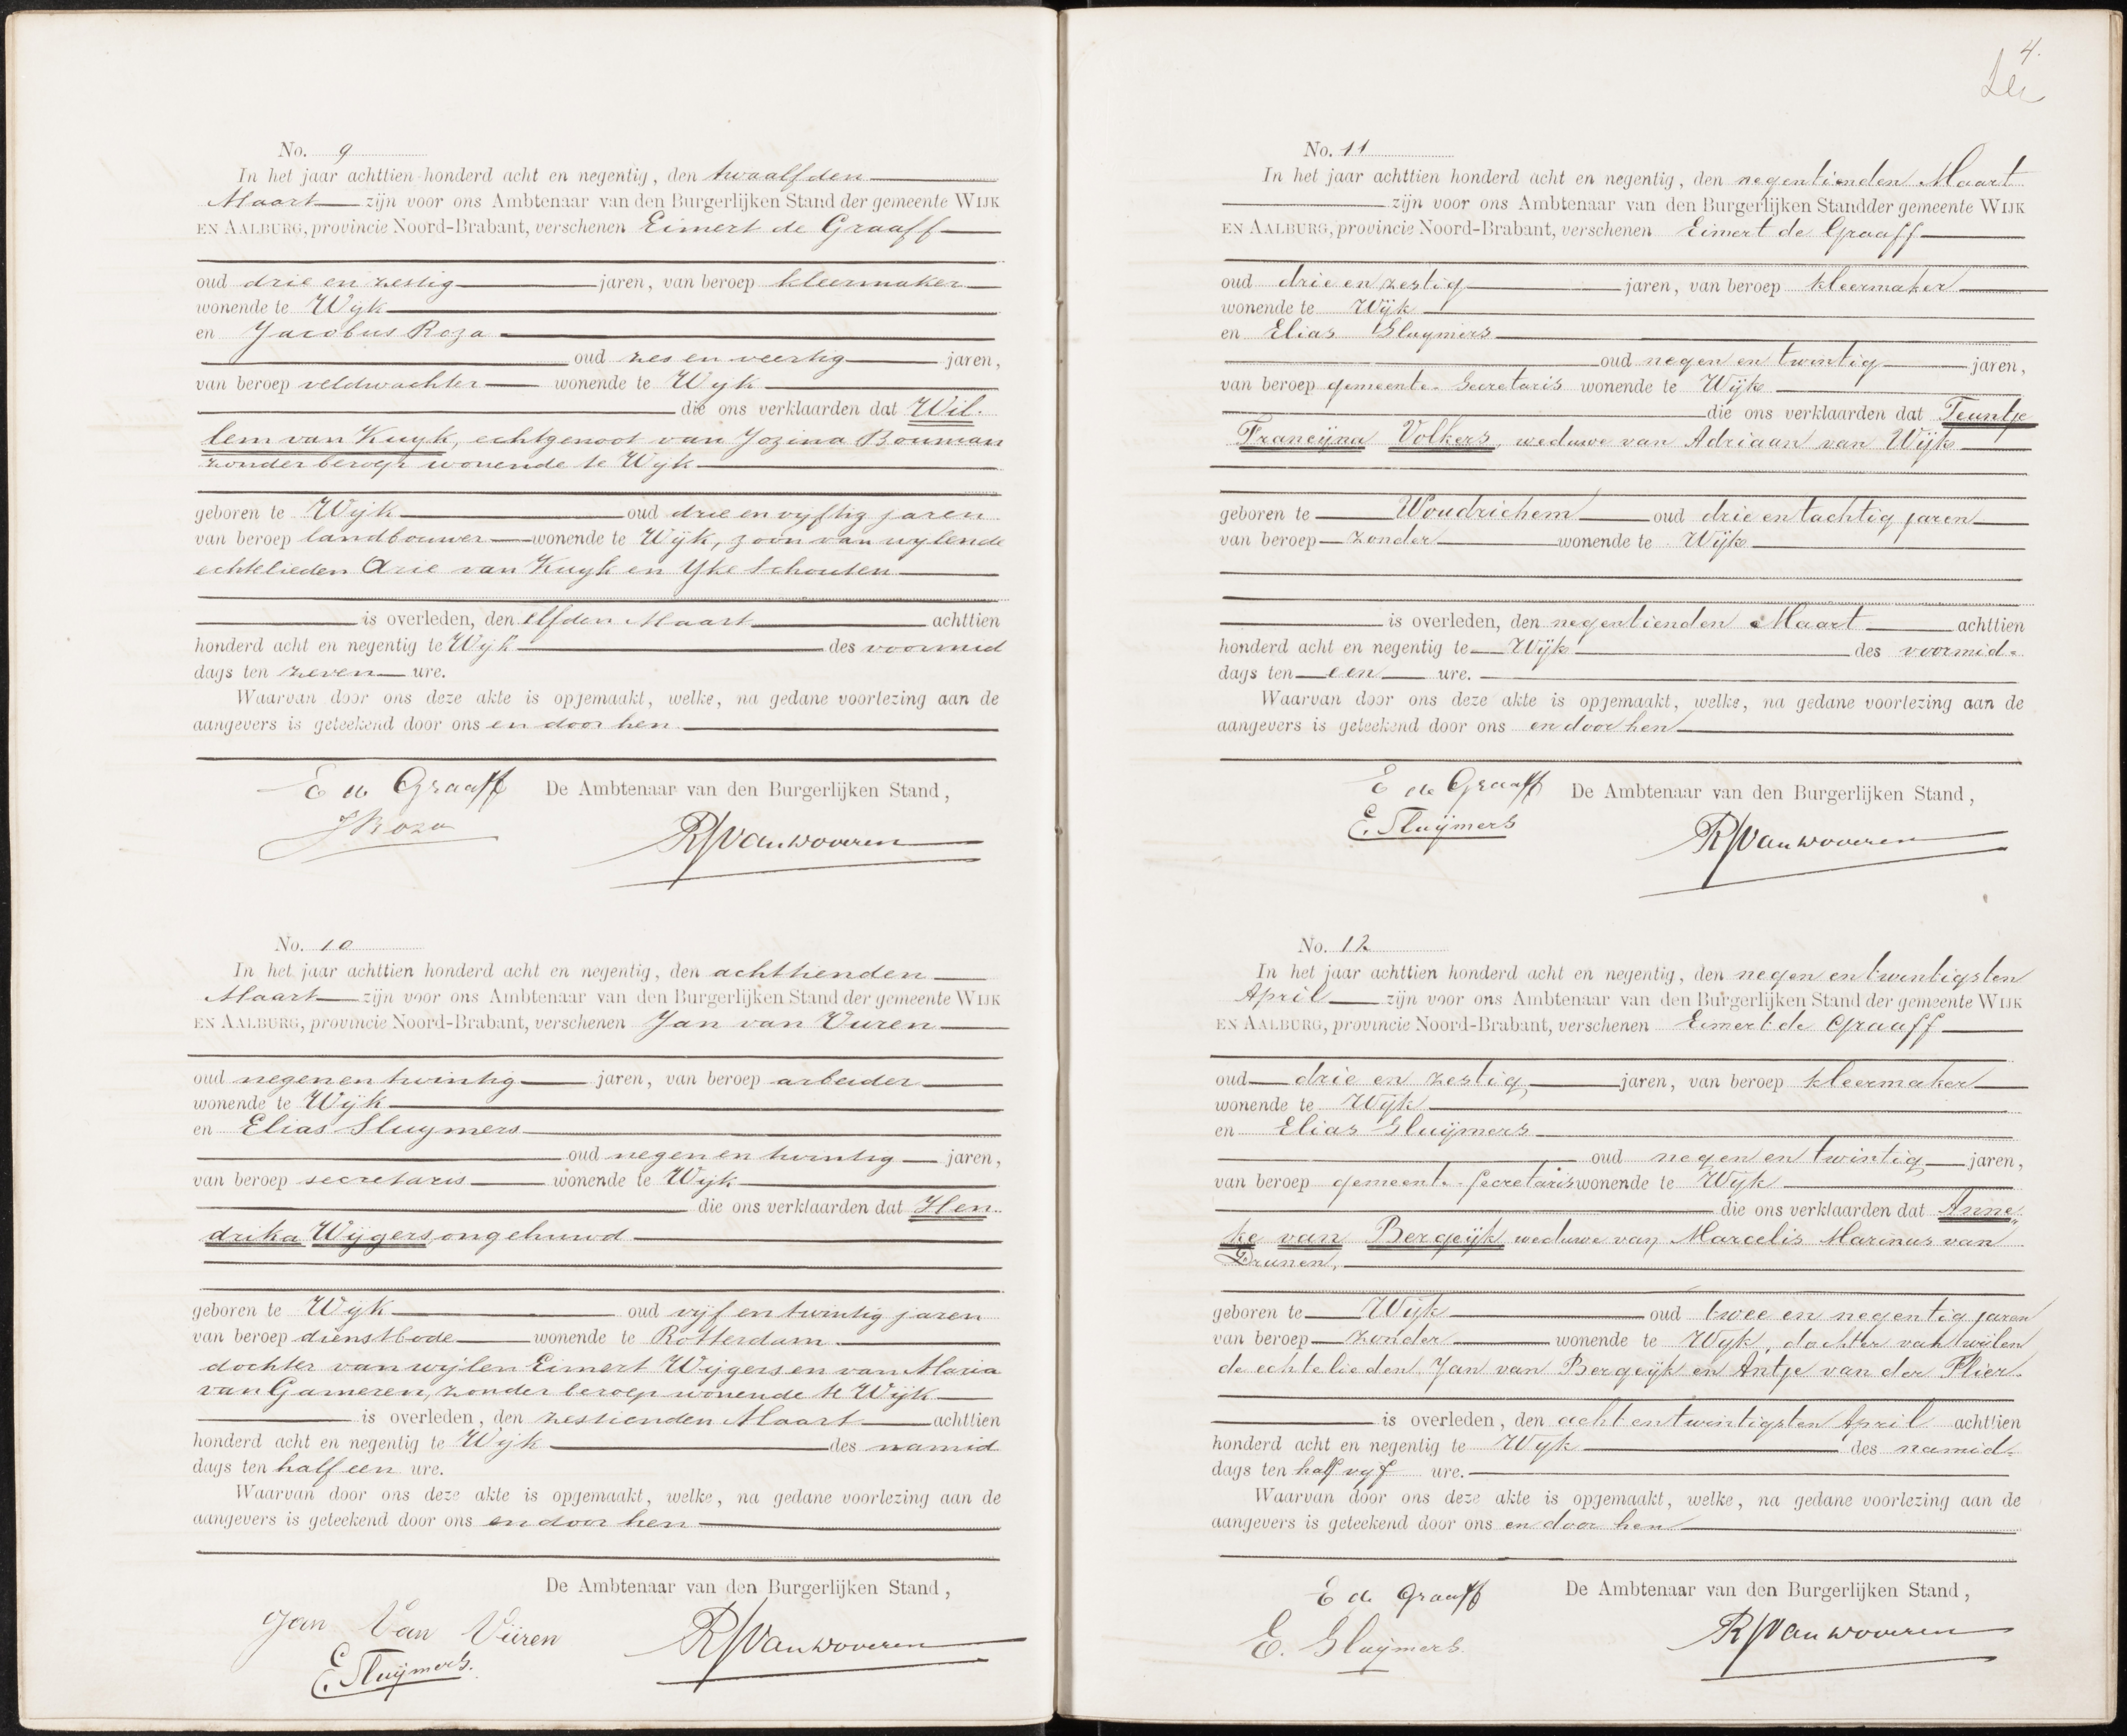 No. 9
In het jaar achttien honderd acht en negentig, den twaalfden
Maart zijn voor ons Ambtenaar van den Burgerlijken Stand der gemeente WIJK
EN AALBURG, provincie Noord-Brabant, verschenen Eimert de Graaff
oud drie en zestig jaren, van beroep kleermaker
wonende te Wijk
en Jacobus Roza
oud zes en veertig jaren,
van beroep veldwachter wonende te Wijk
die ons verklaarden dat Wil-
lem van Kuyk, echtgenoot van Jozina Bouman
zonder beroep wonende te Wijk
geboren te Wijk oud drie en vijftig jaren
van beroep landbouwer wonende te Wijk, zoon van wylende
echtelieden Arie van Kuyk en Yke Schouten
is overleden, den elfden Maart achttien
honderd acht en negentig te Wijk des voormid
dags ten zeven ure.
Waarvan door ons deze akte is opgemaakt, welke, na gedane voorlezing aan de
aangevers is geteekend door ons en door hen
E de Graaff De Ambtenaar van den Burgerlijken Stand,
J Roza
RVanwoveren
No. 10
In het jaar achttien honderd acht en negentig, den achttienden
Maart zijn voor ons Ambtenaar van den Burgerlijken Stand der gemeente WIJK
EN AALBURG, provincie Noord-Brabant, verschenen Jan van Vuren
oud negenentwintig jaren, van beroep arbeider
wonende te Wijk
en Elias Sluymers
oud negen en twintig jaren,
van beroep secretaris wonende te Wijk
die ons verklaarden dat Hen-
drika Wijgers, ongehuwd
geboren te Wijk oud vijf en twintig jaren
van beroep dienstbode wonende te Rotterdam
dochter van wijlen Eimert Wijgers en van Maria
van Gameren, zonder beroep wonende te Wijk
is overleden, den zestienden Maart achttien
honderd acht en negentig te Wijk des namid
dags ten half een ure.
Waarvan door ons deze akte is opgemaakt, welke, na gedane voorlezing aan de
aangevers is geteekend door ons en door hen
De Ambtenaar van den Burgerlijken Stand,
Jan Van Vüren
E. Sluijmers.
RVanwoveren
4.
No. 11
In het jaar achttien honderd acht en negentig, den negentienden Maart
zijn voor ons Ambtenaar van den Burgerlijken Standder gemeente WIJK
EN AALBURG, provincie Noord-Brabant, verschenen Eimert de Graaff
oud drie en zestig jaren, van beroep kleermaker
wonende te Wijk
en Elias Sluymers
oud negen en twintig jaren,
van beroep gemeente-Secretaris wonende te Wijk
die ons verklaarden dat Teuntje
Francijna Volkers, weduwe van Adriaan van Wijk
geboren te Woudrichem oud drie en tachtig jaren
van beroep zonder wonende te Wijk
is overleden, den negentienden Maart achttien
honderd acht en negentig te Wijk des voormid-
dags ten een ure.
Waarvan door ons deze akte is opgemaakt, welke, na gedane voorlezing aan de
aangevers is geteekend door ons en door hen
E de Graaff De Ambtenaar van den Burgerlijken Stand,
E. Sluijmers
RVanwoveren
No. 12
In het jaar achttien honderd acht en negentig, den negen en twintigsten
April zijn voor ons Ambtenaar van den Burgerlijken Stand der gemeente WIJK
EN AALBURG, provincie Noord-Brabant, verschenen Eimert de Graaff
oud drie en zestig jaren, van beroep kleermaker
wonende te Wijk
en Elias Sluijmers
oud negen en twintig jaren,
van beroep gemeente-Secretaris wonende te Wijk
die ons verklaarden dat Anne-
ke van Bergeijk weduwe van Marcelis Marinus van
Drunen,
geboren te Wijk oud twee en negentig jaren
van beroep zonder wonende te Wijk, dochter van wijlen
de echtelieden Jan van Bergeijk en Antje van der Flier.
is overleden, den acht en twintigsten April achttien
honderd acht en negentig te Wijk des namid-
dags ten half vijf ure.
Waarvan door ons deze akte is opgemaakt, welke, na gedane voorlezing aan de
aangevers is geteekend door ons en door hen
E de Graaff De Ambtenaar van den Burgerlijken Stand,
E. Sluijmers.
RVanwoveren